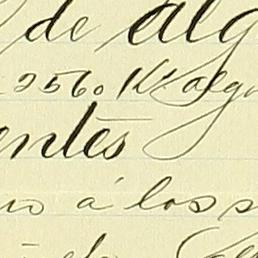 de alg
2560 Ks. alg
entes
no á los s